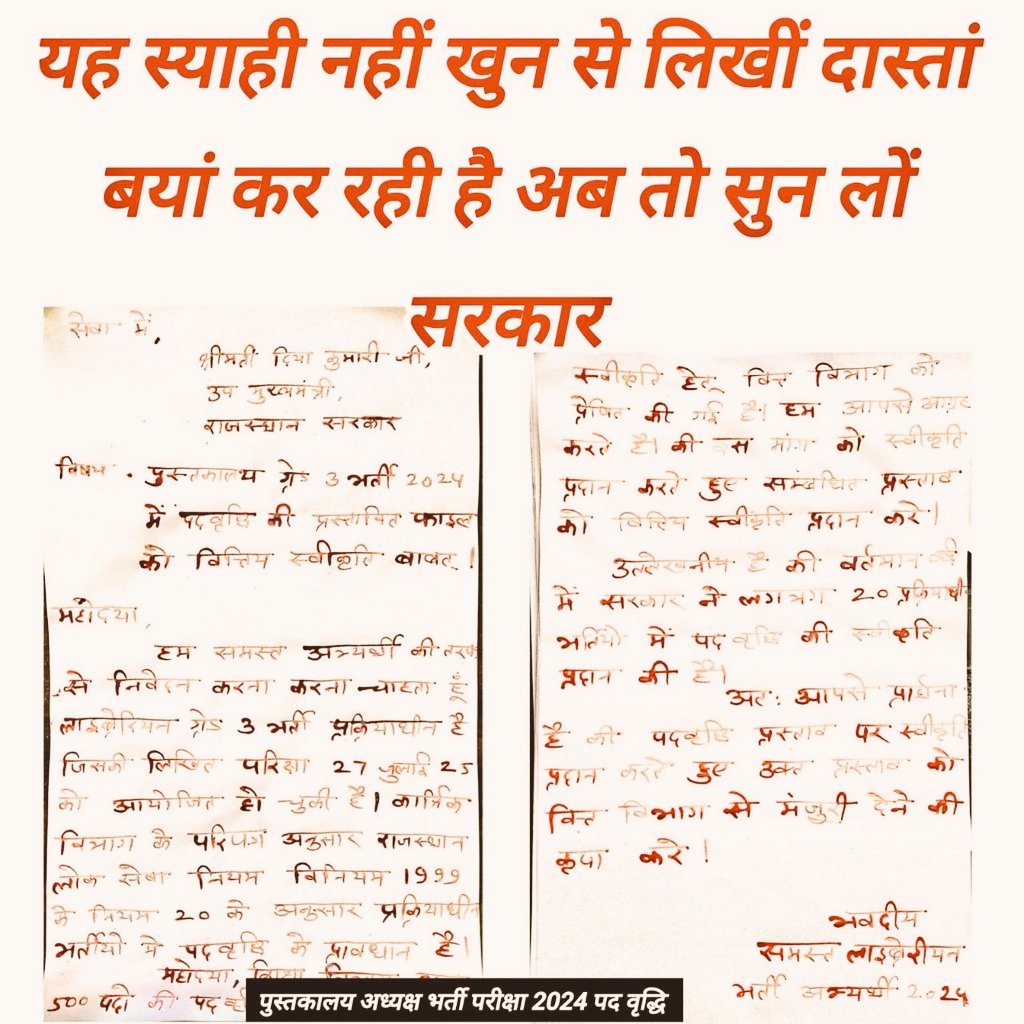 यह स्याही नहीं खुन से लिखीं दास्तां
बयां कर रही है अब तो सुन लों
सरकार
सेवा में,
श्रीमती दिया कुमारी जी,
उप मुख्यमंत्री,
राजस्थान सरकार
विषय - पुस्तकालय ग्रेड 3 भर्ती 2024
में पदवृद्धि की प्रस्तावित फाइल
को वित्तिय स्वीकृति बाबत्।
महोदया,
हम समस्त अभ्यर्थी की तरफ
से निवेदन करना करना चाहता हूँ
लाइब्रेरियन ग्रेड 3 भर्ती प्रक्रियाधीन है
जिसकी लिखित परिक्षा 27 जुलाई 25
को आयोजित हो चुकी है। कार्मिक
विभाग के परिपत्र अनुसार राजस्थान
लोक सेवा नियम विनियम 1999
के नियम 20 के अनुसार प्रक्रियाधीन
भर्तीयो मे पदवृद्धि के प्रावधान है।
महोदया, शिक्षा
500 पदो की पद
स्वीकृति हेतू वित्त विभाग को
प्रेषित की गई है। हम आपसे आग्रह
करते है। की इस मांग को स्वीकृति
प्रदान करते हुए सम्बंधित प्रस्ताव
को वित्तिय स्वीकृति प्रदान करे।
उल्लेखनीय है की वर्तमान वर्ष
में सरकार ने लगभग 20 प्रक्रियाधी
भर्तियो में पद वृद्धि की स्वीकृति
प्रदान की है।
अत: आपसे प्रार्थना
है की पदवृद्धि प्रस्ताव पर स्वीकृति
प्रदान करते हुए उक्त प्रस्ताव को
वित्त विभाग से मंजुरी देने की
कृपा करे।
भवदीय
समस्त लाइब्रेरीयन
भर्ती अभ्यर्थी 2024
पुस्तकालय अध्यक्ष भर्ती परीक्षा 2024 पद वृद्धि